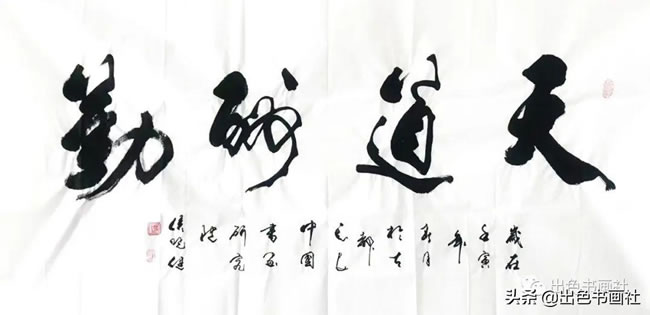 天道酬勤
岁在
壬寅
年
春月
于古
都
中国
书画
研究
院
出色书画社
头条@出色书画社